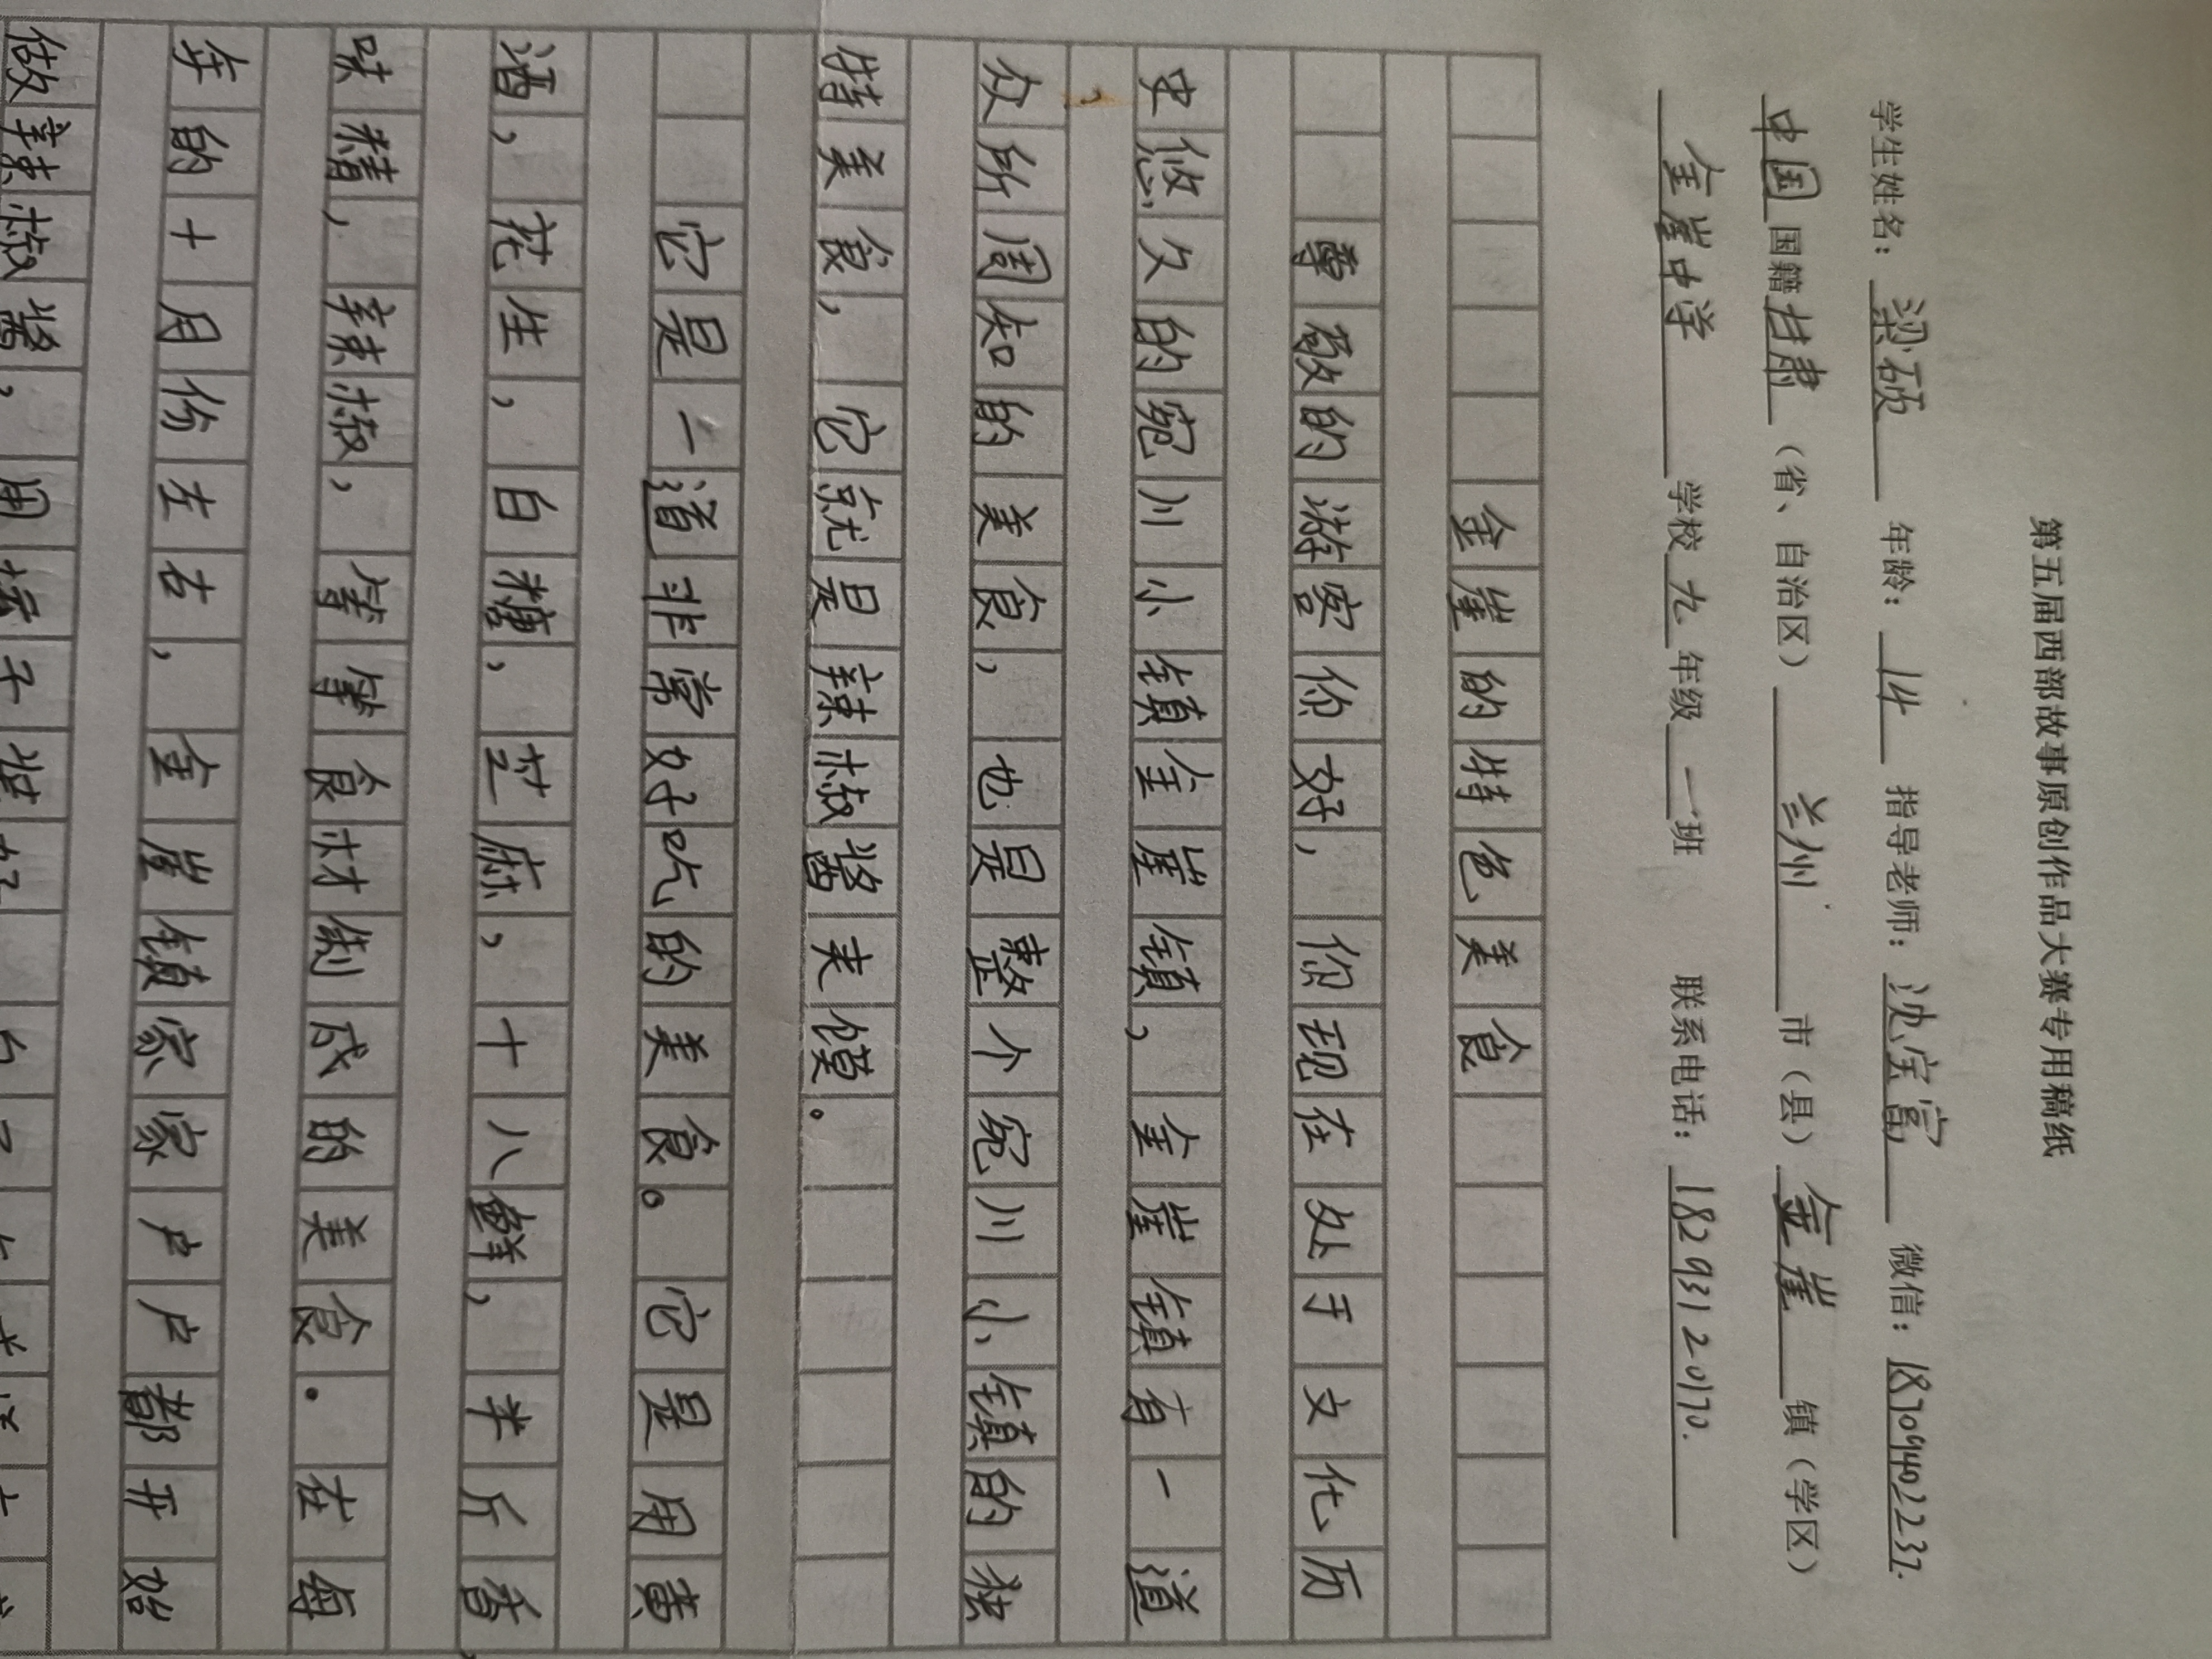 第五届西部故事原创作品大赛专用稿纸
学生姓名：梁硕 年龄：14 指导老师：沈宝富 微信：18709402237.
中国国籍甘肃（省、自治区）兰州市（县）金崖镇（学区）
金崖中学学校九年级一班 联系电话：18293120170.
金崖的特色美食
尊敬的游客你好，你现在处于文化历
史悠久的宛川小镇金崖镇，金崖镇有一道
，
众所周知的美食，也是整个宛川小镇的独
特美食，它就是辣椒酱夹馍。
它是一道非常好吃的美食。它是用黄
酒，花生，白糖，芝麻，十八鲜，半斤香
味精，辣椒，等等食材制成的美食．在每
年的十月份左右，金崖镇家家户户都开始
做辣椒酱，用